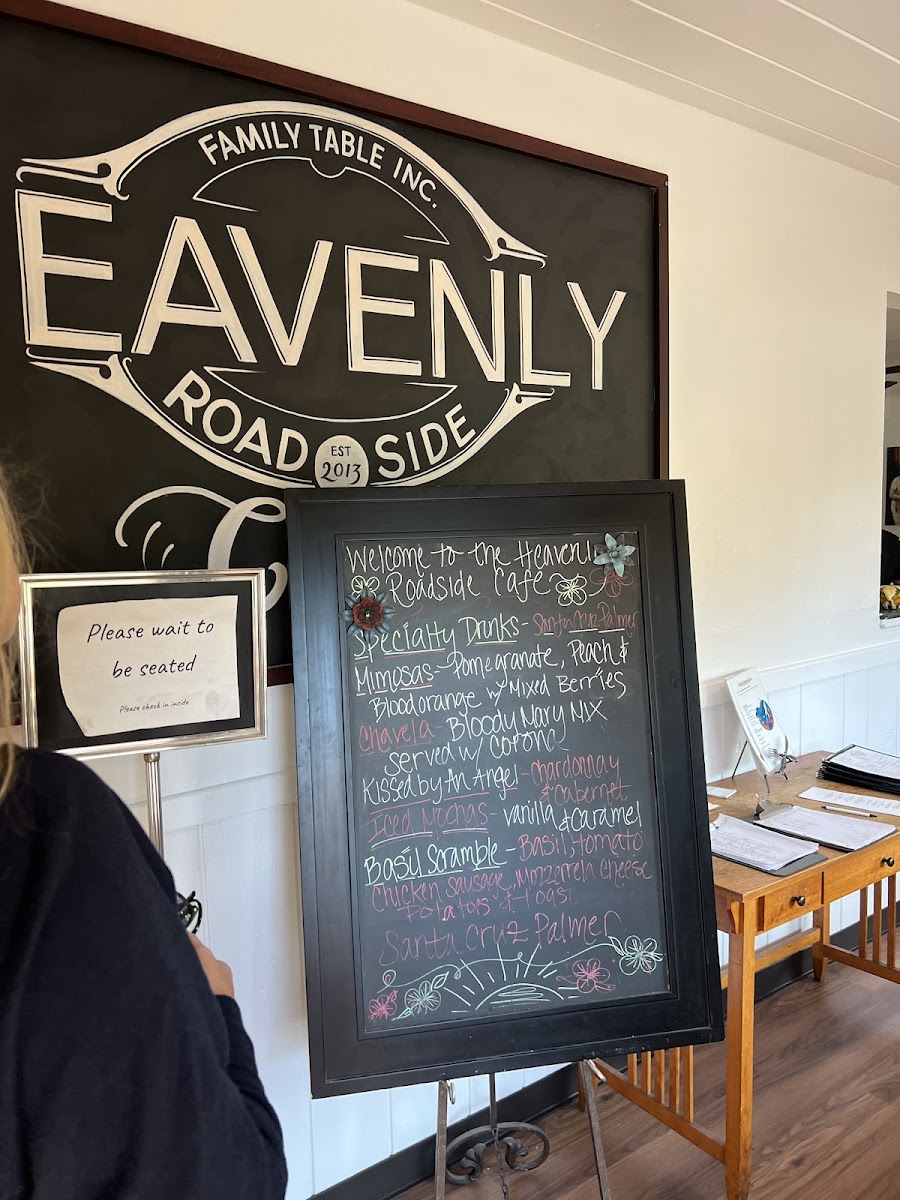 FAMILY TABLE INC.
EAVENLY
ROAD SIDE
EST
2013
Please wait to
be seated
Please check in inside
Welcome to the Heavenly
Roadside Cafe
Specialty Drinks - Santa Cruz Palmer
Mimosas - Pomegranate, Peach &
Bloodorange w/ Mixed Berries
Chavela - Bloody Mary Mix
Served w/ Corona
Kissed by An Angel - Chardonnay
& Cabernet
Iced Mochas - vanilla & Caramel
Basil Scramble - Basil, tomato
Chicken Sausage, Mozzerrela Cheese
Potatoes & Toast
Santa Cruz Palmer